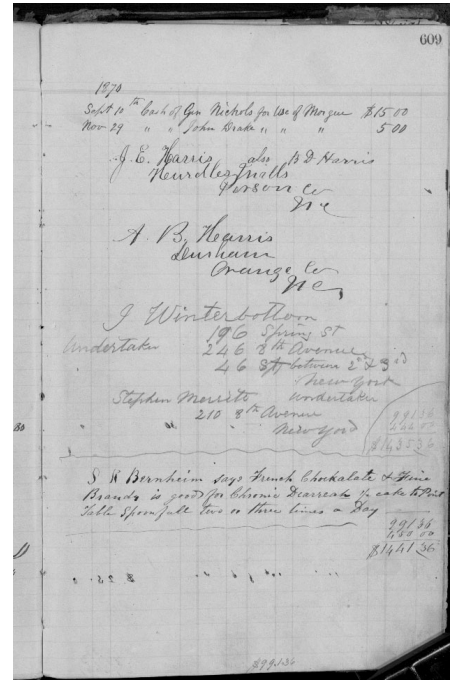 609
1870
Sept 10th Cash of Gen Nichols for use of Morgue $15.00
Nov 29 " " John Drake " " " 5 00
J. E. Harris also B D Harris
Hurdles Mills
Person Co
N c
A. B. Harris
Durham
Orange Co
N C,
J Winterbottom
196 Spring St
Undertaker 246 8th Avenue
46 St between 2d & 3rd
New York
Stephen Merritt Undertaker
210 8th Avenue
New York
991 36
$1435 36
S W Bernheim says French Chockalate & Wine
Brandy is good for Chronic Diarreah ½ cake to Pint
Table Spoonfull Two or three times a Day
991 36
450 00
$1441 36
$991.36